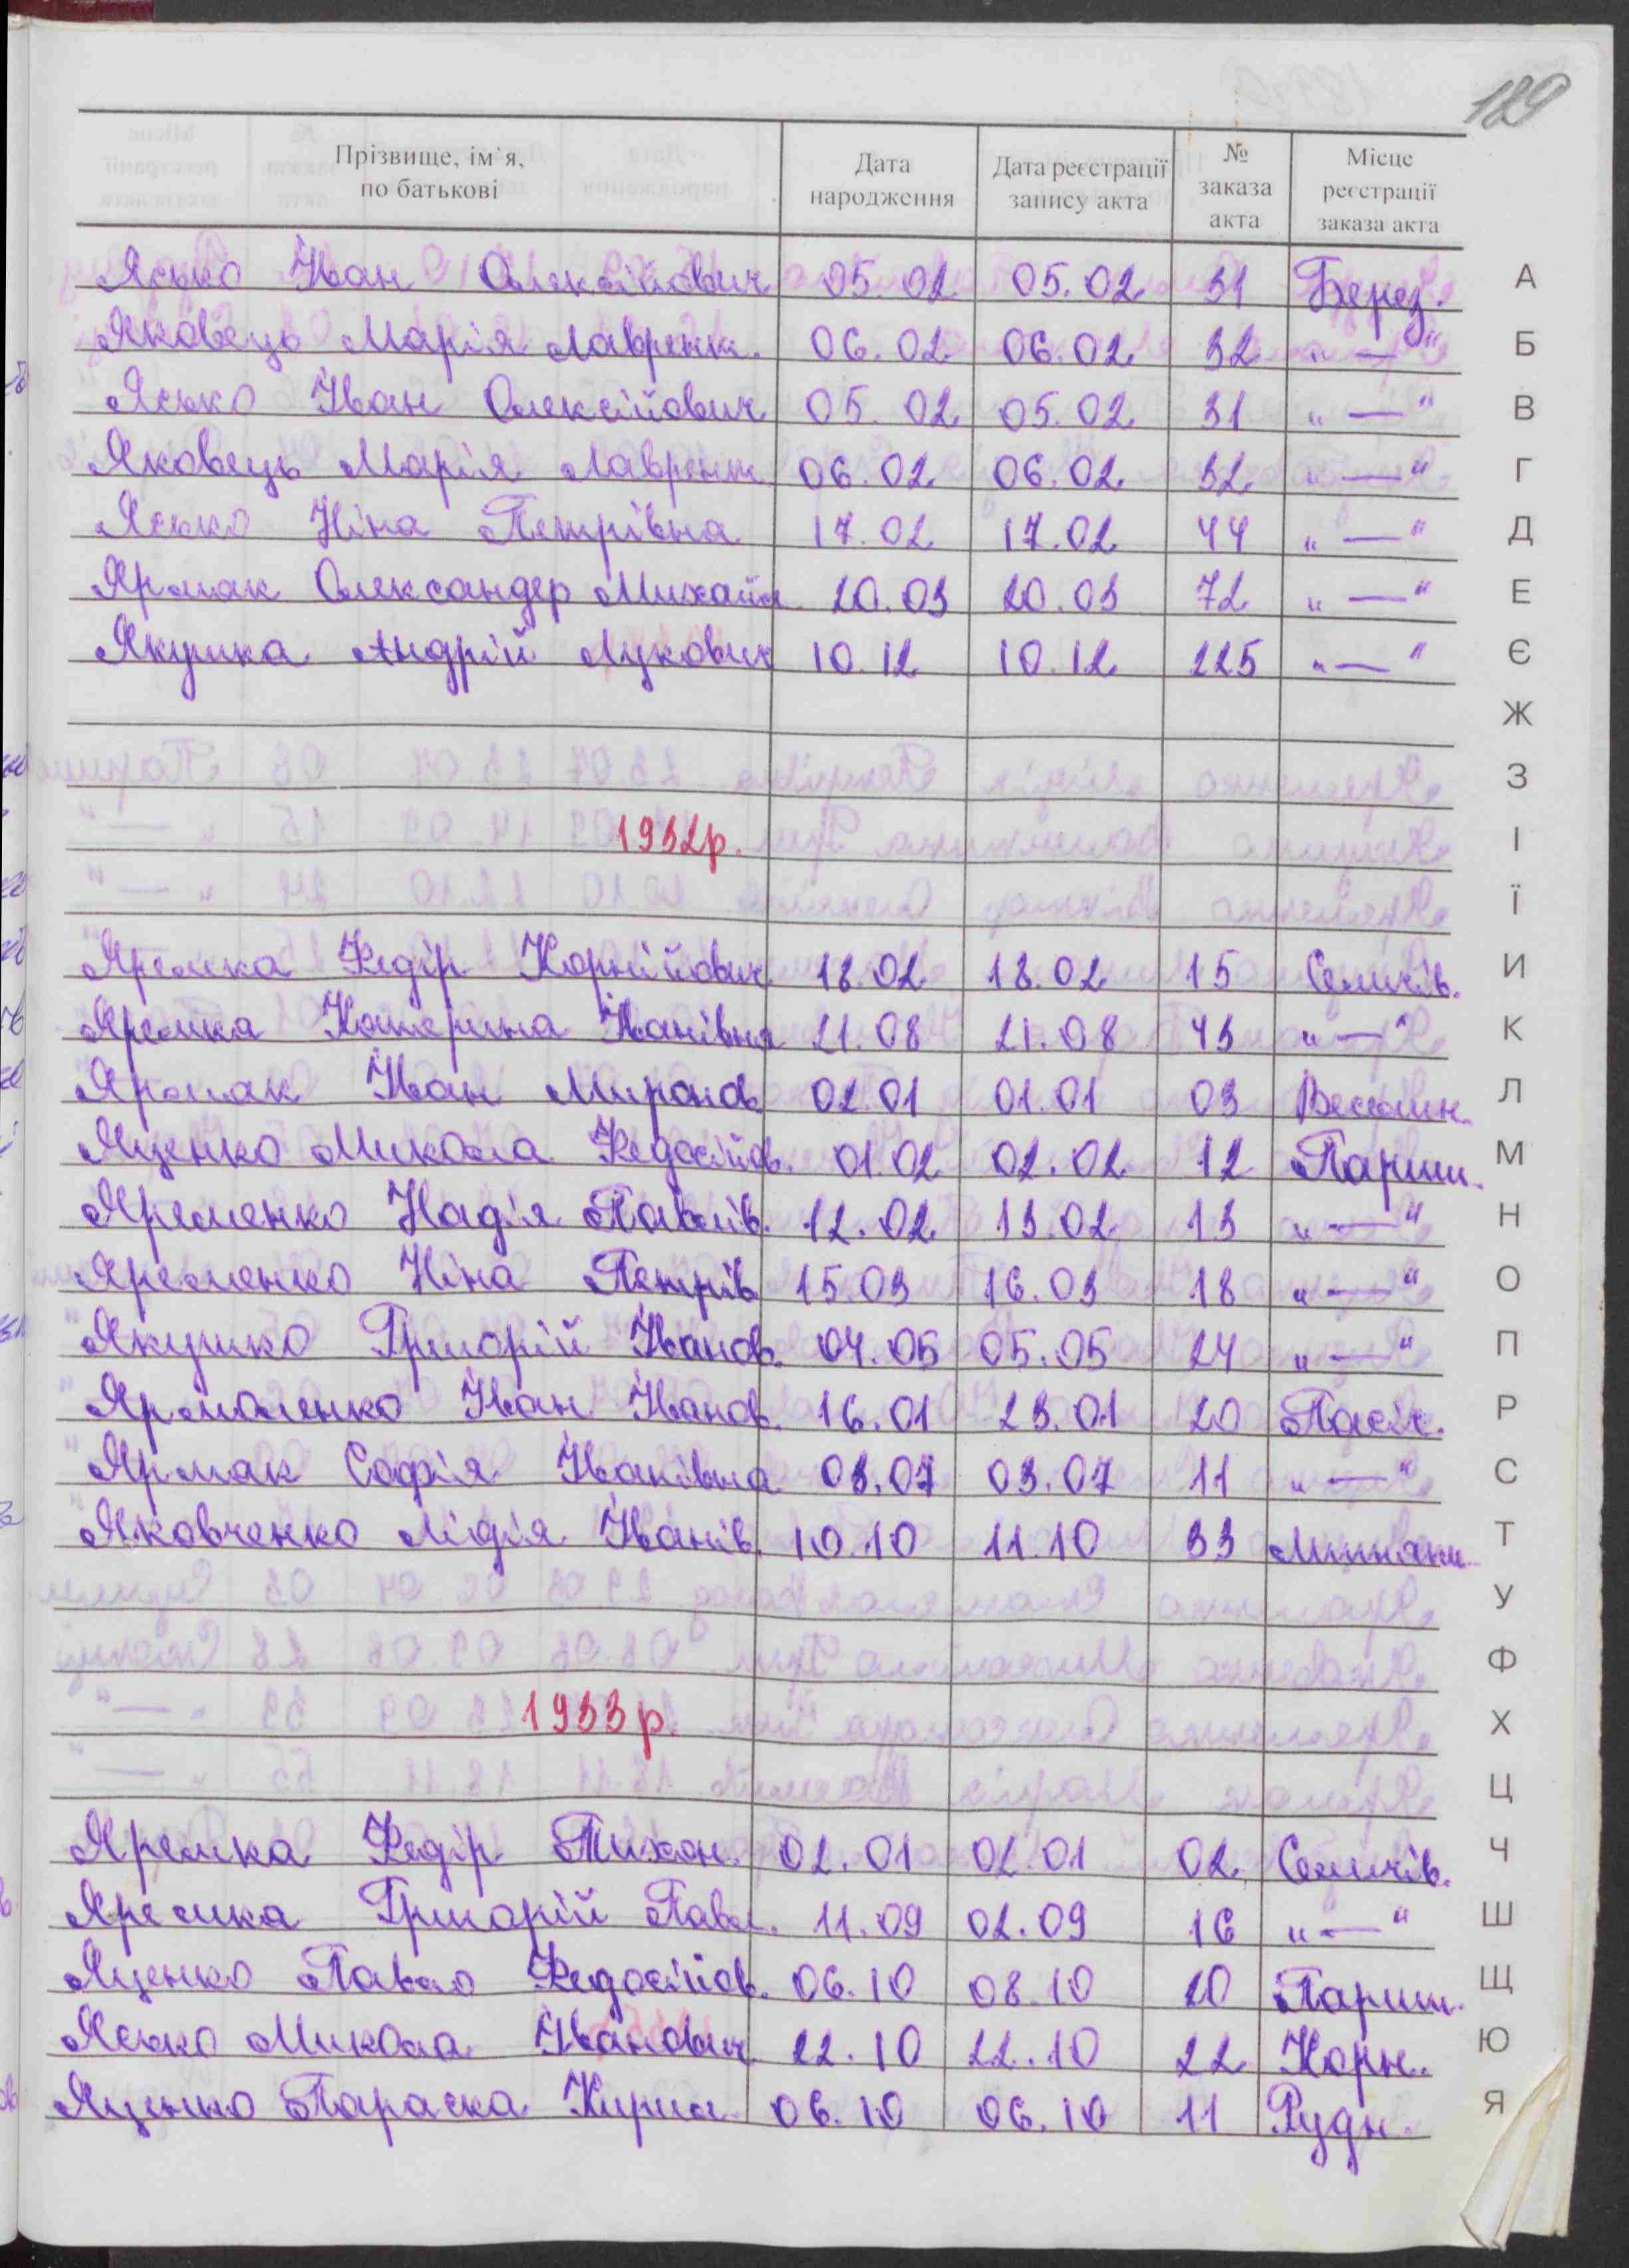 129
Прізвище, ім'я, по батькові Дата народження Дата реєстрації запису акта № заказа акта Місце реєстрації заказа акта
Ясько Іван Олексійович 05.02 05.02 31 Берез. А
Яковець Марія Лаврент. 06.02 06.02 32 „ — “ Б
Ясько Іван Олексійович 05.02 05.02 31 „ — “ В
Яковець Марія Лаврент 06.02 06.02 32 „ — “ Г
Ясько Ніна Петрівна 17.02 17.02 44 „ — “ Д
Ярмак Олександер Михайл 20.03 20.03 72 „ — “ Е
Якушка Андрій Лукович 10.12 10.12 225 „ — “ Є
Ж
З
1932р. І
Ї
Яремка Федір Корнійович 18.02 18.02 15 Семичів. И
Яремка Катерина Іванівна 21.08 21.08 43 „ — “ К
Ярмак Іван Миронов 02.01 01.01 03 Л
Яценко Микола Федосійов. 01.02 02.02 12 Париш. М
Яременко Надія Павлів. 12.02 13.02 13 „ — “ Н
Яременко Ніна Петрів 15.03 16.03 18 „ — “ О
Якушко Григорій Іванов. 04.05 05.05 24 „ — “ П
Ярмоленко Іван Іванов. 16.01 23.01 20 Пасіч. Р
Ярмак Софія Іванівна 03.07 03.07 11 „ — “ С
Яковченко Лідія Іванів. 10.10 11.10 33 Т
У
Ф
1933р. Х
Ц
Яремка Федір Тихон. 02.01 02.01 02 Семичів. Ч
Яремка Григорій Павл. 11.09 02.09 16 „ — “ Ш
Яценко Павло Федосійов. 06.10 08.10 20 Париш. Щ
Ясько Микола Іванович 22.10 22.10 22 Корн. Ю
Яценко Параска Кирил. 06.10 06.10 11 Рудн. Я